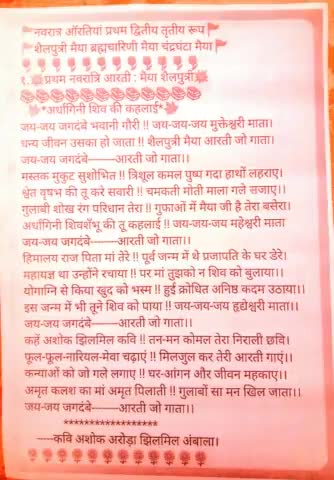 🚩नवरात्र ऑरतियां प्रथम द्वितीय तृतीय रूप🚩
🚩शैलपुत्री मैया ब्रह्मचारिणी मैया चंद्रघंटा मैया🚩
१.🌺प्रथम नवरात्रि आरती : मैया शैलपुत्री🌺
🍁*अर्धांगिनी शिव की कहलाई*🍁
जय-जय जगदंबे भवानी गौरी !! जय-जय-जय मुक्तेश्वरी माता।
धन्य जीवन उसका हो जाता !! शैलपुत्री मैया आरती जो गाता।।
जय-जय जगदंबे-------आरती जो गाता।।
मस्तक मुकुट सुशोभित !! त्रिशूल कमल पुष्प गदा हाथों लहराए।
श्वेत वृषभ की तू करे सवारी !! चमकती मोती माला गले सजाए।।
गुलाबी शोख रंग परिधान तेरा !! गुफाओं में मैया जी है तेरा बसेरा।
अर्धांगिनी शिवशँभू की तू कहलाई !! जय-जय-जय महेश्वरी माता
जय-जय जगदंबे-------आरती जो गाता।।
हिमालय राज पिता मां तेरे !! पूर्व जन्म में थे प्रजापति के घर डेरे।
महायज्ञ था उन्होंने रचाया !! पर मां तुझको न शिव को बुलाया।।
योगाग्नि से किया खुद को भस्म !! हुई क्रोधित अनिष्ठ कदम उठाया।।
इस जन्म में भी तूने शिव को पाया !! जय-जय-जय हृद्येश्वरी माता।।
जय-जय जगदंबे-------आरती जो गाता।।
कहें अशोक झिलमिल कवि !! तन-मन कोमल तेरा निराली छवि।
फूल-फूल-नारियल-मेवा चढ़ाएं !! मिलजुल कर तेरी आरती गाएं।।
कन्याओं को जो गले लगाए !! घर-आंगन और जीवन महकाए।।
अमृत कलश का मां अमृत पिलाती !! गुलाबों सा मन खिल जाता।।
जय-जय जगदंबे-------आरती जो गाता।।
*******************
-----कवि अशोक अरोड़ा झिलमिल अंबाला।